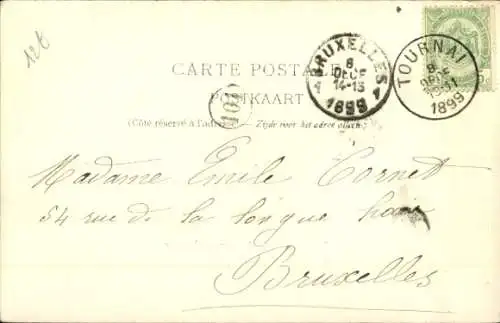 12 f
CARTE POSTALE
POSTKAART
(Côté réservé à l'adresse) Zijde voor het adres alleen
BRUXELLES
8
DECE
14-15
1 1
1899
TOURNAI
1899
101
Madame Emile Cornet
54 rue de la longue haie
Bruxelles